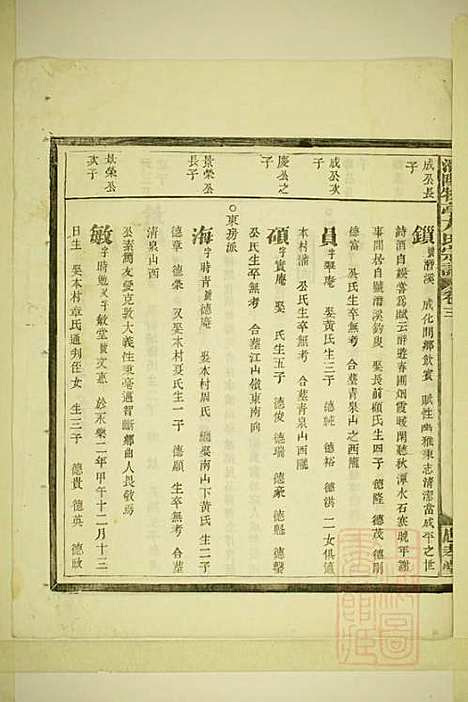 成公長子
鎖 號潛溪 成化間鄉飲賓 賦性幽雅秉志清潔當成平之世
詩酒自娛嘗爲賦云醉遊春圃烟霞暖閑聽秋潭水石寒晚年謝
事閒居自號潛溪釣叟 娶長前顧氏生四子 德隆 德茂 德剛
德富 公氏生卒無考 合墓青泉山之西隴
成公次子
員 字翠庵 娶黃氏生三子 德純 德裕 德洪 二女俱適
本村 公氏生卒無考 合墓青泉山西隴
慶公之子
碩 字實庵 娶 氏生五子 德俊 德瑞 德豪 德懸 德馨
公氏生卒無考 合墓江山嶺東南向
○東房派
景榮公長子
海 字時青號德庵 娶本村周氏 繼娶南山下黃氏生二子
德章 德榮 又娶本村夏氏生一子 德顯 生卒無考 合墓
清泉山西
景榮公次子
敏 字時勉又字敏堂號文意 於永樂二年甲午十二月十三
日生 娶本村章氏通判侄女 生三子 德貴 德英 德政
公素潤友愛克敦大義性秉毫邁智斷鄉曲人畏敬焉